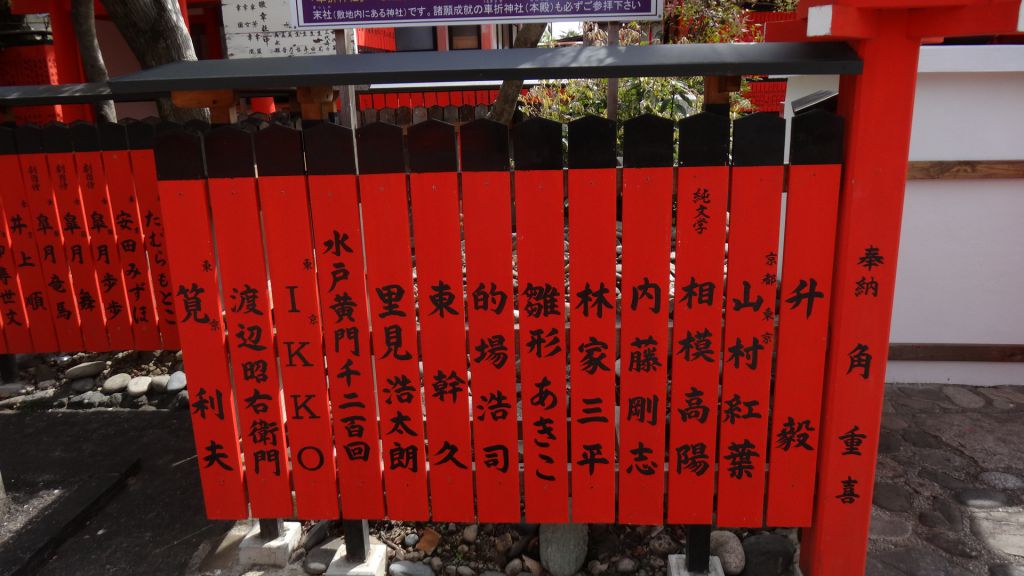 末社(敷地内にある神社)です。諸願成就の車折神社(本殿)も必ずご参拝下さい
奉納 角重喜
升毅
京都 東京 山村紅葉
純文学 相模高陽
内藤剛志
林家三平
雛形あきこ
的場浩司
東幹久
里見浩太朗
水戸黄門千二百回
東京 IKKO
渡辺昭右衛門
東京 筧利夫
たむらもとこ
安田みずほ
劇団侍 皐月歩歩
劇団侍 皐月舞
劇団侍 皐月竜馬
井上順